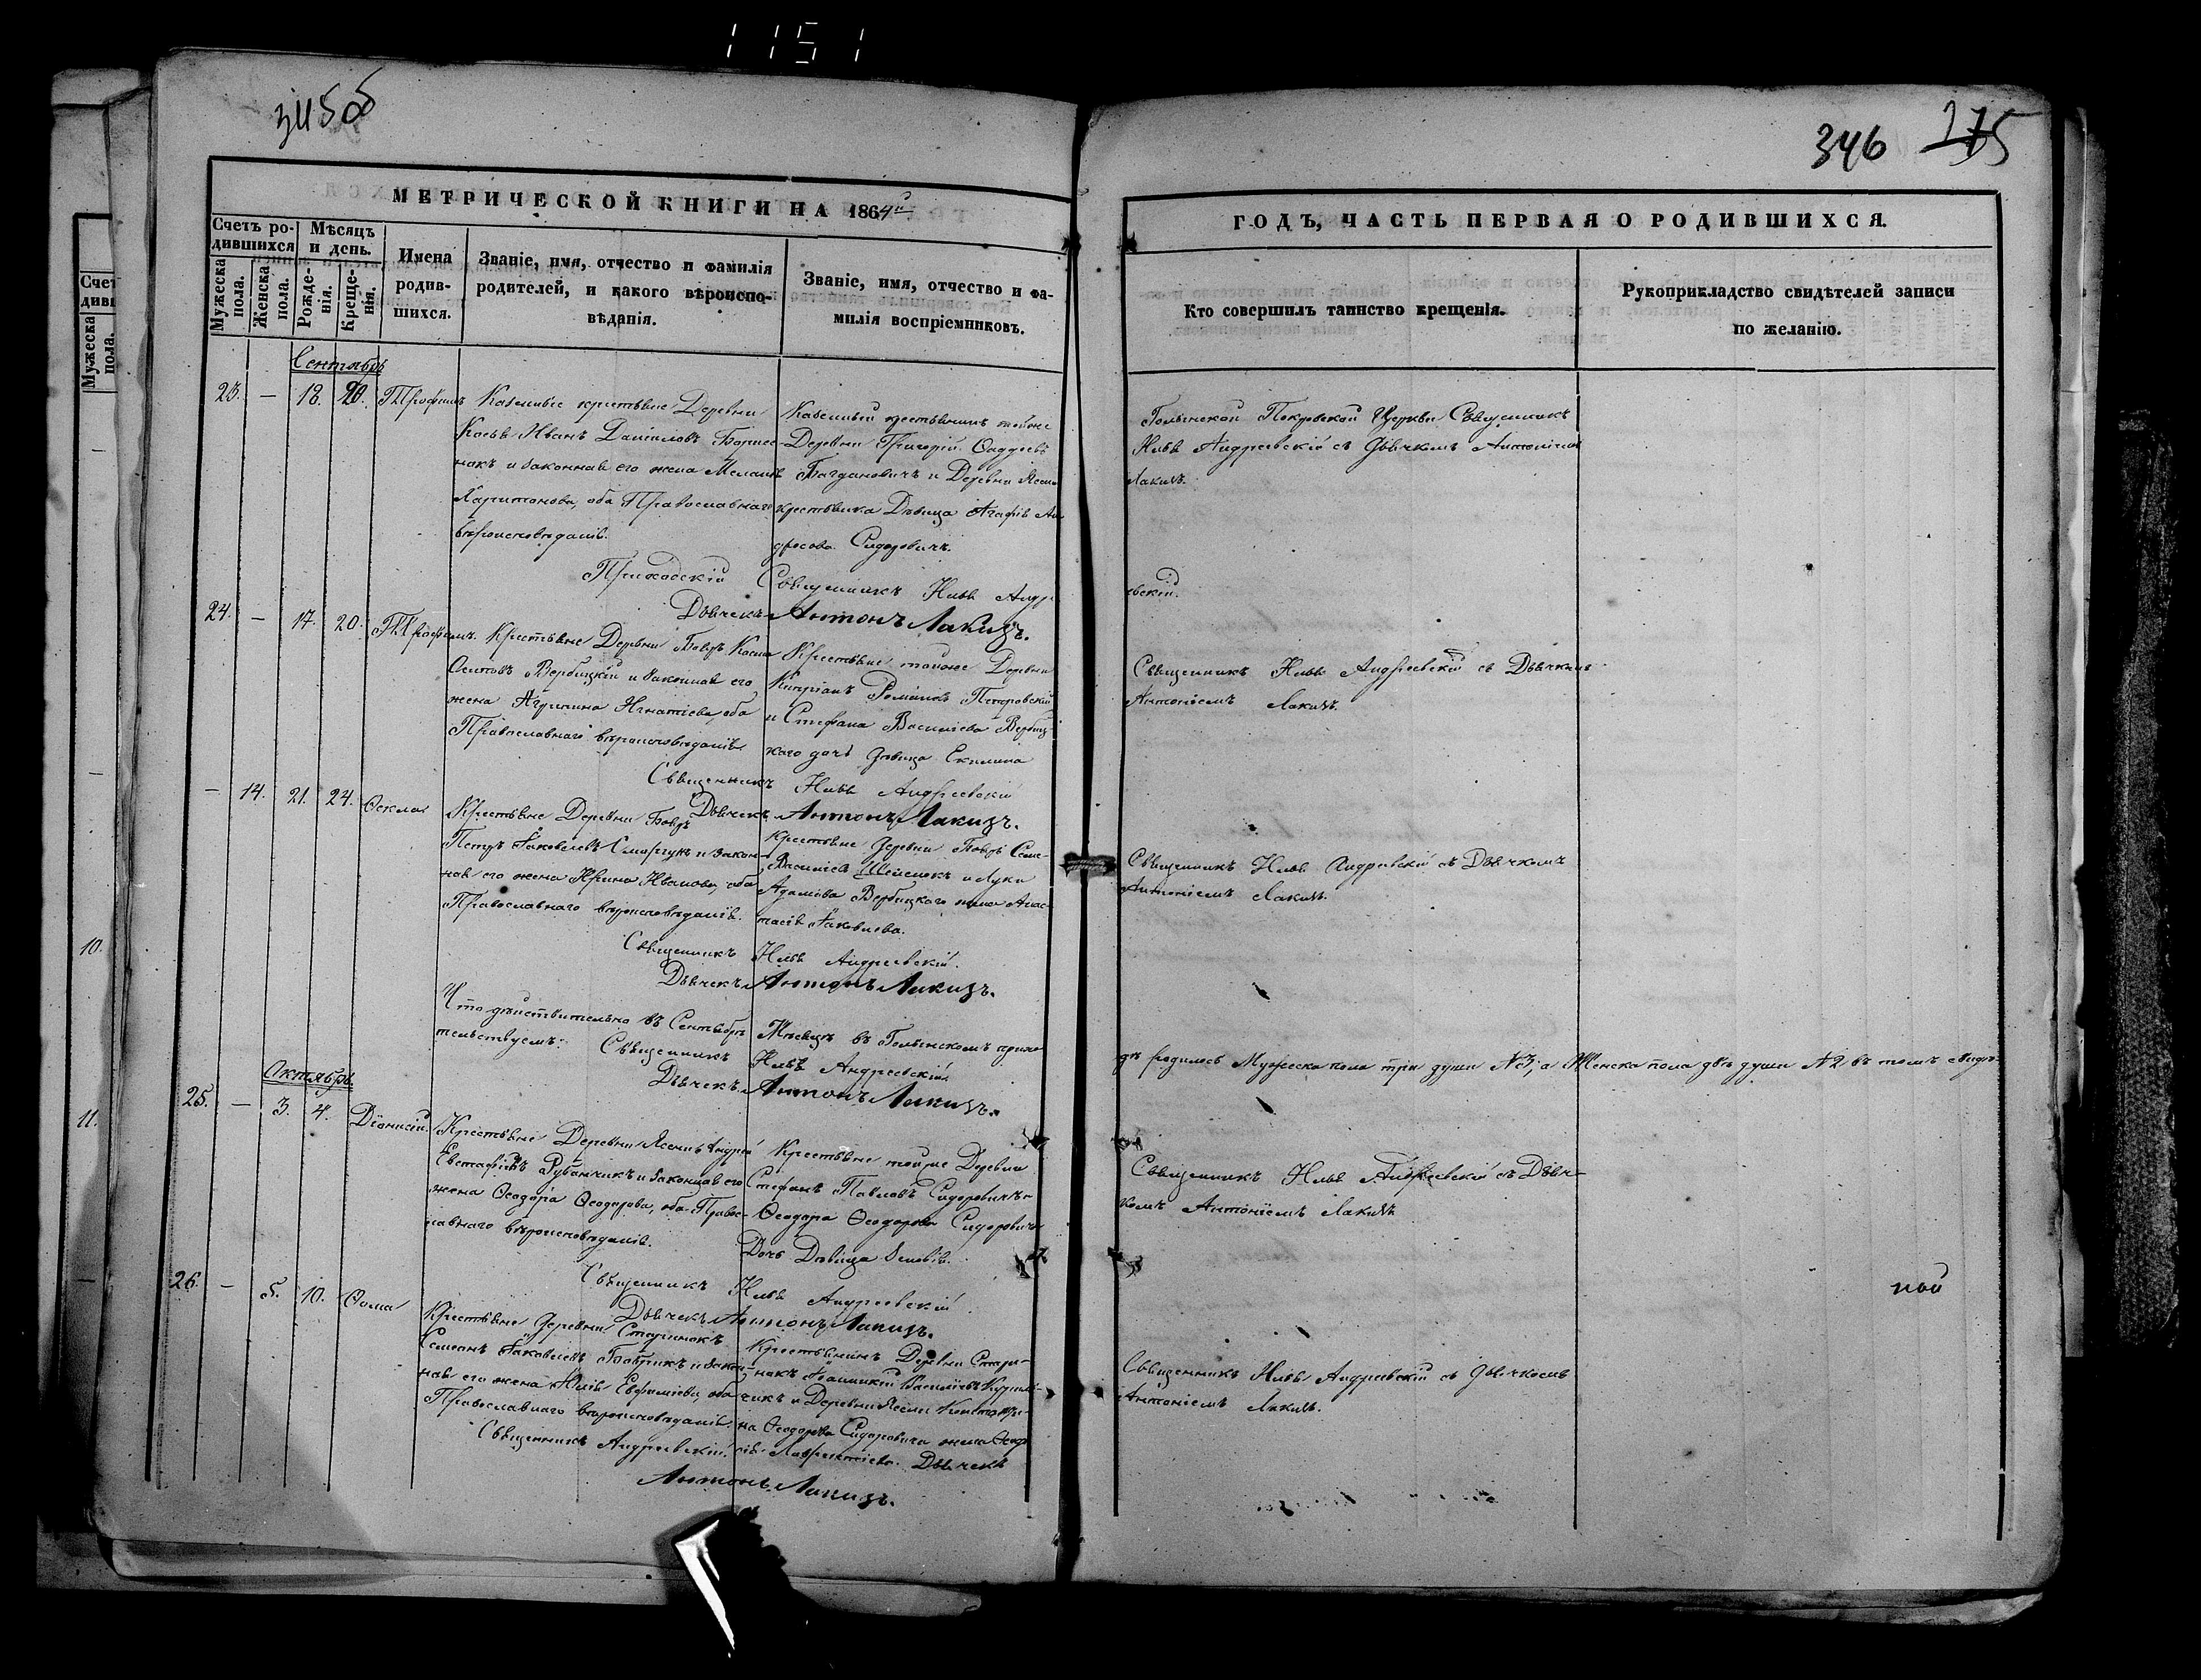 1151
345об
346 275
МЕТРИЧЕСКОЙ КНИГИ НА 1864й
ГОДЪ, ЧАСТЬ ПЕРВАЯ О РОДИВШИХСЯ.
Счетъ ро-
дившихся
Мужеска
пола.
Женска
пола.
Мѣсяцъ
и день.
Рожде-
нія.
Креще-
нія.
Имена
родив-
шихся.
Званіе, имя, отчество и фамилія
родителей, и какого вѣроиспо-
вѣданія.
Званіе, имя, отчество и фа-
милія воспріемниковъ.
Кто совершилъ таинство крещенія.
Рукоприкладство свидѣтелей записи
по желанію.
Сентябрь
23. — 18. 20. Трофимъ
Деревни
Иванъ Даніиловъ
и законная его жена Меланія
Харитонова, оба Православнаго
вѣроисповѣданія.
тойже
Деревни Григорій Фаддеевъ
Богдановичъ и Деревни
крестьянка Дѣвица Агафія Ан
Сидоровичъ.
Голынской Покровской Церкви Священникъ
Андреевскій съ Дьячкомъ Антоніемъ
Лакизъ.
Приходскій Священникъ Андре
евскій.
Дьячекъ Антонъ Лакизъ.
24. — 17. 20. Трофимъ.
Крестьяне Деревни Косма
Осиповъ Вербицкій и законная его
жена Агрипина Игнатіева, оба
Православнаго вѣроисповѣданія
Крестьяне тойже Деревни
Кипріанъ Романовъ Петровскій
и Стефана Василіева Вербиц-
каго дочь дѣвица Екилина
Священникъ Андреевскій съ Дьячкомъ
Антоніемъ Лакизъ.
Священникъ Андреевскій
Дьячекъ Антонъ Лакизъ.
— 14. 21. 24. Ѳекла
Крестьяне Деревни
Петръ Іаковлевъ и закон-
ная его жена Ирина Иванова, оба
Православнаго вѣроисповѣданія.
Крестьяне Деревни
Василіевъ и Луки
Адамова Вербицкаго жена Анас-
тасія Іаковлева.
Священникъ Андреевскій съ Дьячкомъ
Антоніемъ Лакизъ.
Священникъ Андреевскій.
Дьячекъ Антонъ Лакизъ.
Что дѣйствительно въ Сентябрѣ Мѣсяцѣ въ Голынскомъ прихо
дѣ родилось Мужеска пола три души №3; а Женска пола двѣ души №2 въ томъ свидѣ-
тельствуемъ: Священникъ Андреевскій
Дьячекъ Антонъ Лакизъ.
Октябрь
25. — 3. 4. Діонисій.
Крестьяне Деревни Ясени Андрей
Евстафіевъ Рубанчикъ и законная его
жена Ѳеодора Ѳеодорова, оба Правос-
лавнаго вѣроисповѣданія.
Крестьяне тойже Деревни
Стефанъ Павловъ Сидоровичъ и
Ѳеодора Ѳеодорова Сидоровича
Дочь Дѣвица Зиновія.
Священникъ Андреевскій съ Дьяч-
комъ Антоніемъ Лакизъ
Священникъ Андреевскій.
Дьячекъ Антонъ Лакизъ.
26. — 5. 10. Ѳома
Крестьяне Деревни Старинокъ
Семеонъ Іаковлевъ Бобрикъ и закон-
ная его жена Юлія Евфиміева, оба
Православнаго вѣроисповѣданія.
Крестьянинъ Деревни Стари-
нокъ Іоанникій Василіевъ
чикъ и Деревни Ясени
на Ѳеодорова Сидоровича жена
Лаврентіева.
Священникъ Андреевскій съ Дьячкомъ
Антоніемъ Лакизъ.
Священникъ Андреевскій. Дьячекъ
Антонъ Лакизъ.
ной
Счет
дивш
Мужеска
пола.
10.
11.